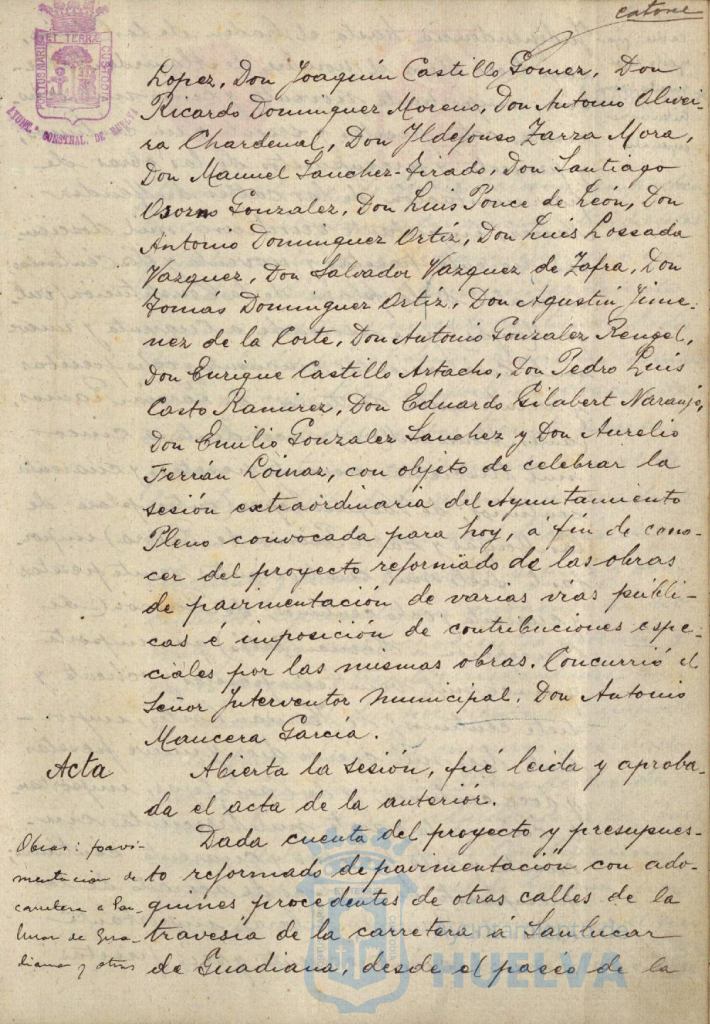 catorce
PORTUS MARIS ET TERRÆ CUSTODIA
AYUNT.º CONSTNAL. DE HUELVA
Lopez, Don Joaquín Castillo Gomez, Don
Ricardo Dominguez Moreno, Don Antonio Olivei-
ra Chardenal, Don Ildefonso Zarza Mora,
Don Manuel Sanchez-Tirado, Don Santiago
Osorno Gonzalez, Don Luis Ponce de León, Don
Antonio Dominguez Ortiz, Don Luis Lossada
Vazquez, Don Salvador Vazquez de Zafra, Don
Tomás Dominguez Ortiz, Don Agustín Jime-
nez de la Corte, Don Antonio Gonzalez Rengel,
Don Enrique Castillo Artacho, Don Pedro Luis
Casto Ramirez, Don Eduardo Gilabert Naranjo,
Don Emilio Gonzalez Sanchez y Don Aurelio
Ferrán Loinaz, con objeto de celebrar la
sesión extraordinaria del Ayuntamiento
Pleno convocada para hoy, á fin de cono-
cer del proyecto reformado de las obras
de pavimentación de varias vías públi-
cas é imposición de contribuciones espe-
ciales por las mismas obras. Concurrió el
Señor Interventor municipal, Don Antonio
Mancera García.
Acta
Abierta la sesión, fué leida y aproba-
da el acta de la anteriór.
Obras: pavi-
mentacion de
carretera a San-
lucar de Gua-
diana y otras
Dada cuenta del proyecto y presupues-
to reformado de pavimentación con ado-
quines procedentes de otras calles de la
travesía de la carretera á Sanlucar
de Guadiana, desde el paseo de la
Ayuntamiento de
HUELVA